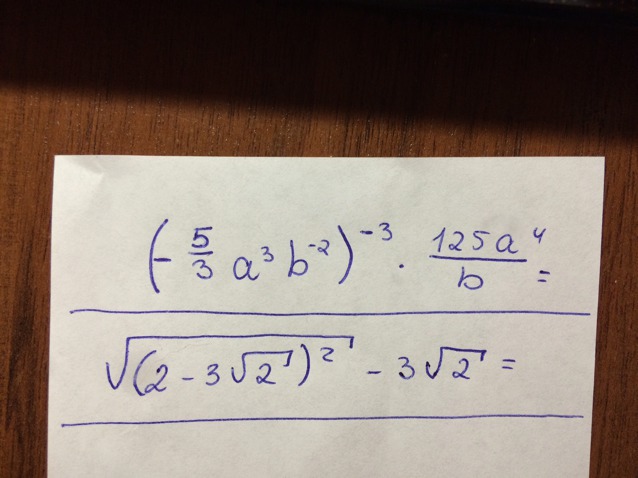 (- 5/3 a³ b⁻²)⁻³ · 125a⁴/b =
√((2 - 3√2)²) - 3√2 =